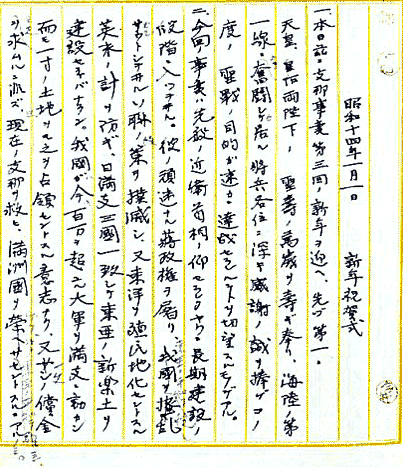 昭和十四年一月一日　新年祝賀式
一、本日茲ニ支那事変第三回ノ新年ヲ迎ヘ、先ヅ第一ニ
天皇、皇后両陛下ノ聖寿ノ萬歳ヲ寿ギ奉リ、海陸ノ第
一線ニ奮闘シ居ル将兵各位ニ深甚感謝ノ誠ヲ捧ゲコノ
度ノ聖戦ノ目的ガ速カニ達成セラレンコトヲ切望スルモノデアル。
二、今回ノ事変ハ先般ノ近衛首相ノ仰セラルヽヤウニ長期建設ノ
段階ニ入ツテヰル。彼ノ頑迷ナル蒋政権ヲ屠リ我国ヲ擾乱
サセントシテヰルソ聯ノ策ヲ撲滅シ、又東洋ヲ殖民地化セントスル
英米ノ計ヲ防ギ、日満支三国一致シテ東亜ノ新楽土ヲ
建設セネバナラン。我国ガ今、百万ヲ超エル大軍ヲ満支ニ動カシ
而モ一寸ノ土地モ之ヲ占領セントスル意志ナク、又一銭ノ償金
ヲ求ムルニ非ズ、現在ノ支那ヲ救ヒ、満洲国ヲ栄ヘサセントスル。